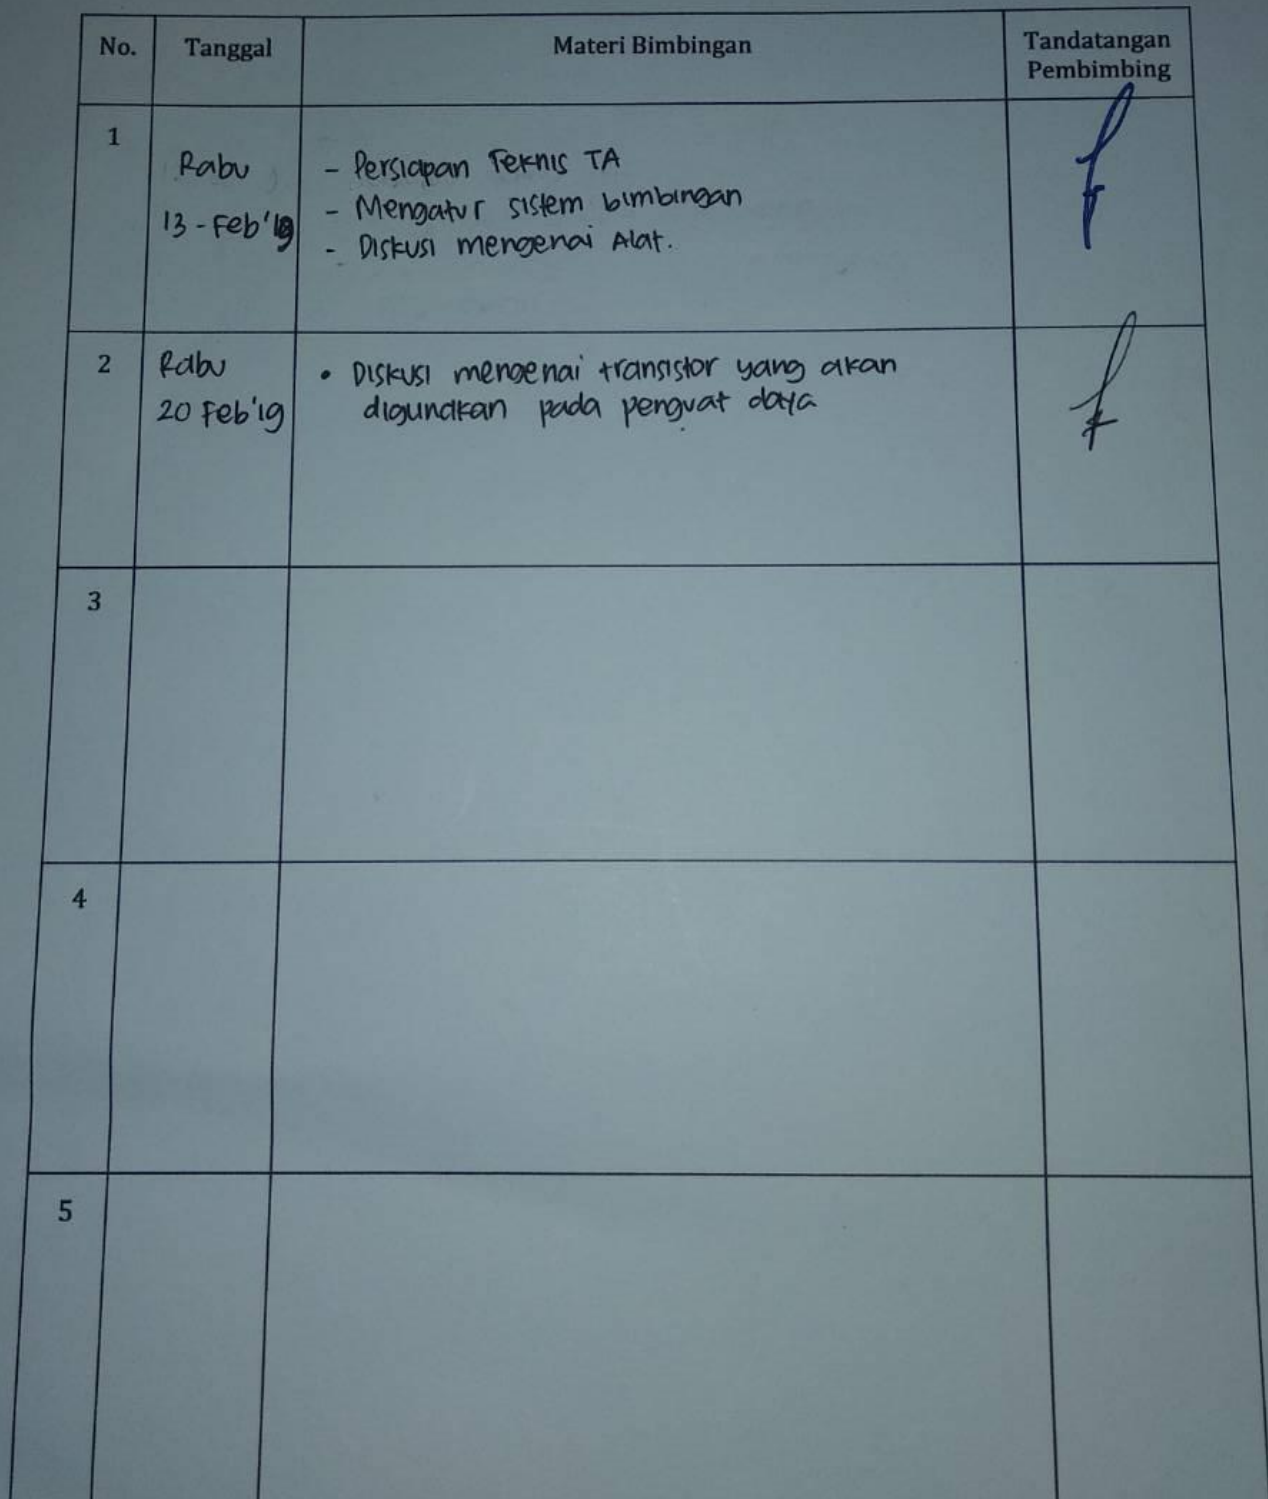 No. Tanggal Materi Bimbingan Tandatangan
Pembimbing
1
Rabu
13 - Feb'19
- Persiapan Teknis TA
- Mengatur sistem bimbingan
- Diskusi mengenai Alat.
2
Rabu
20 Feb'19
• Diskusi mengenai transistor yang akan
digunakan pada penguat daya
3
4
5